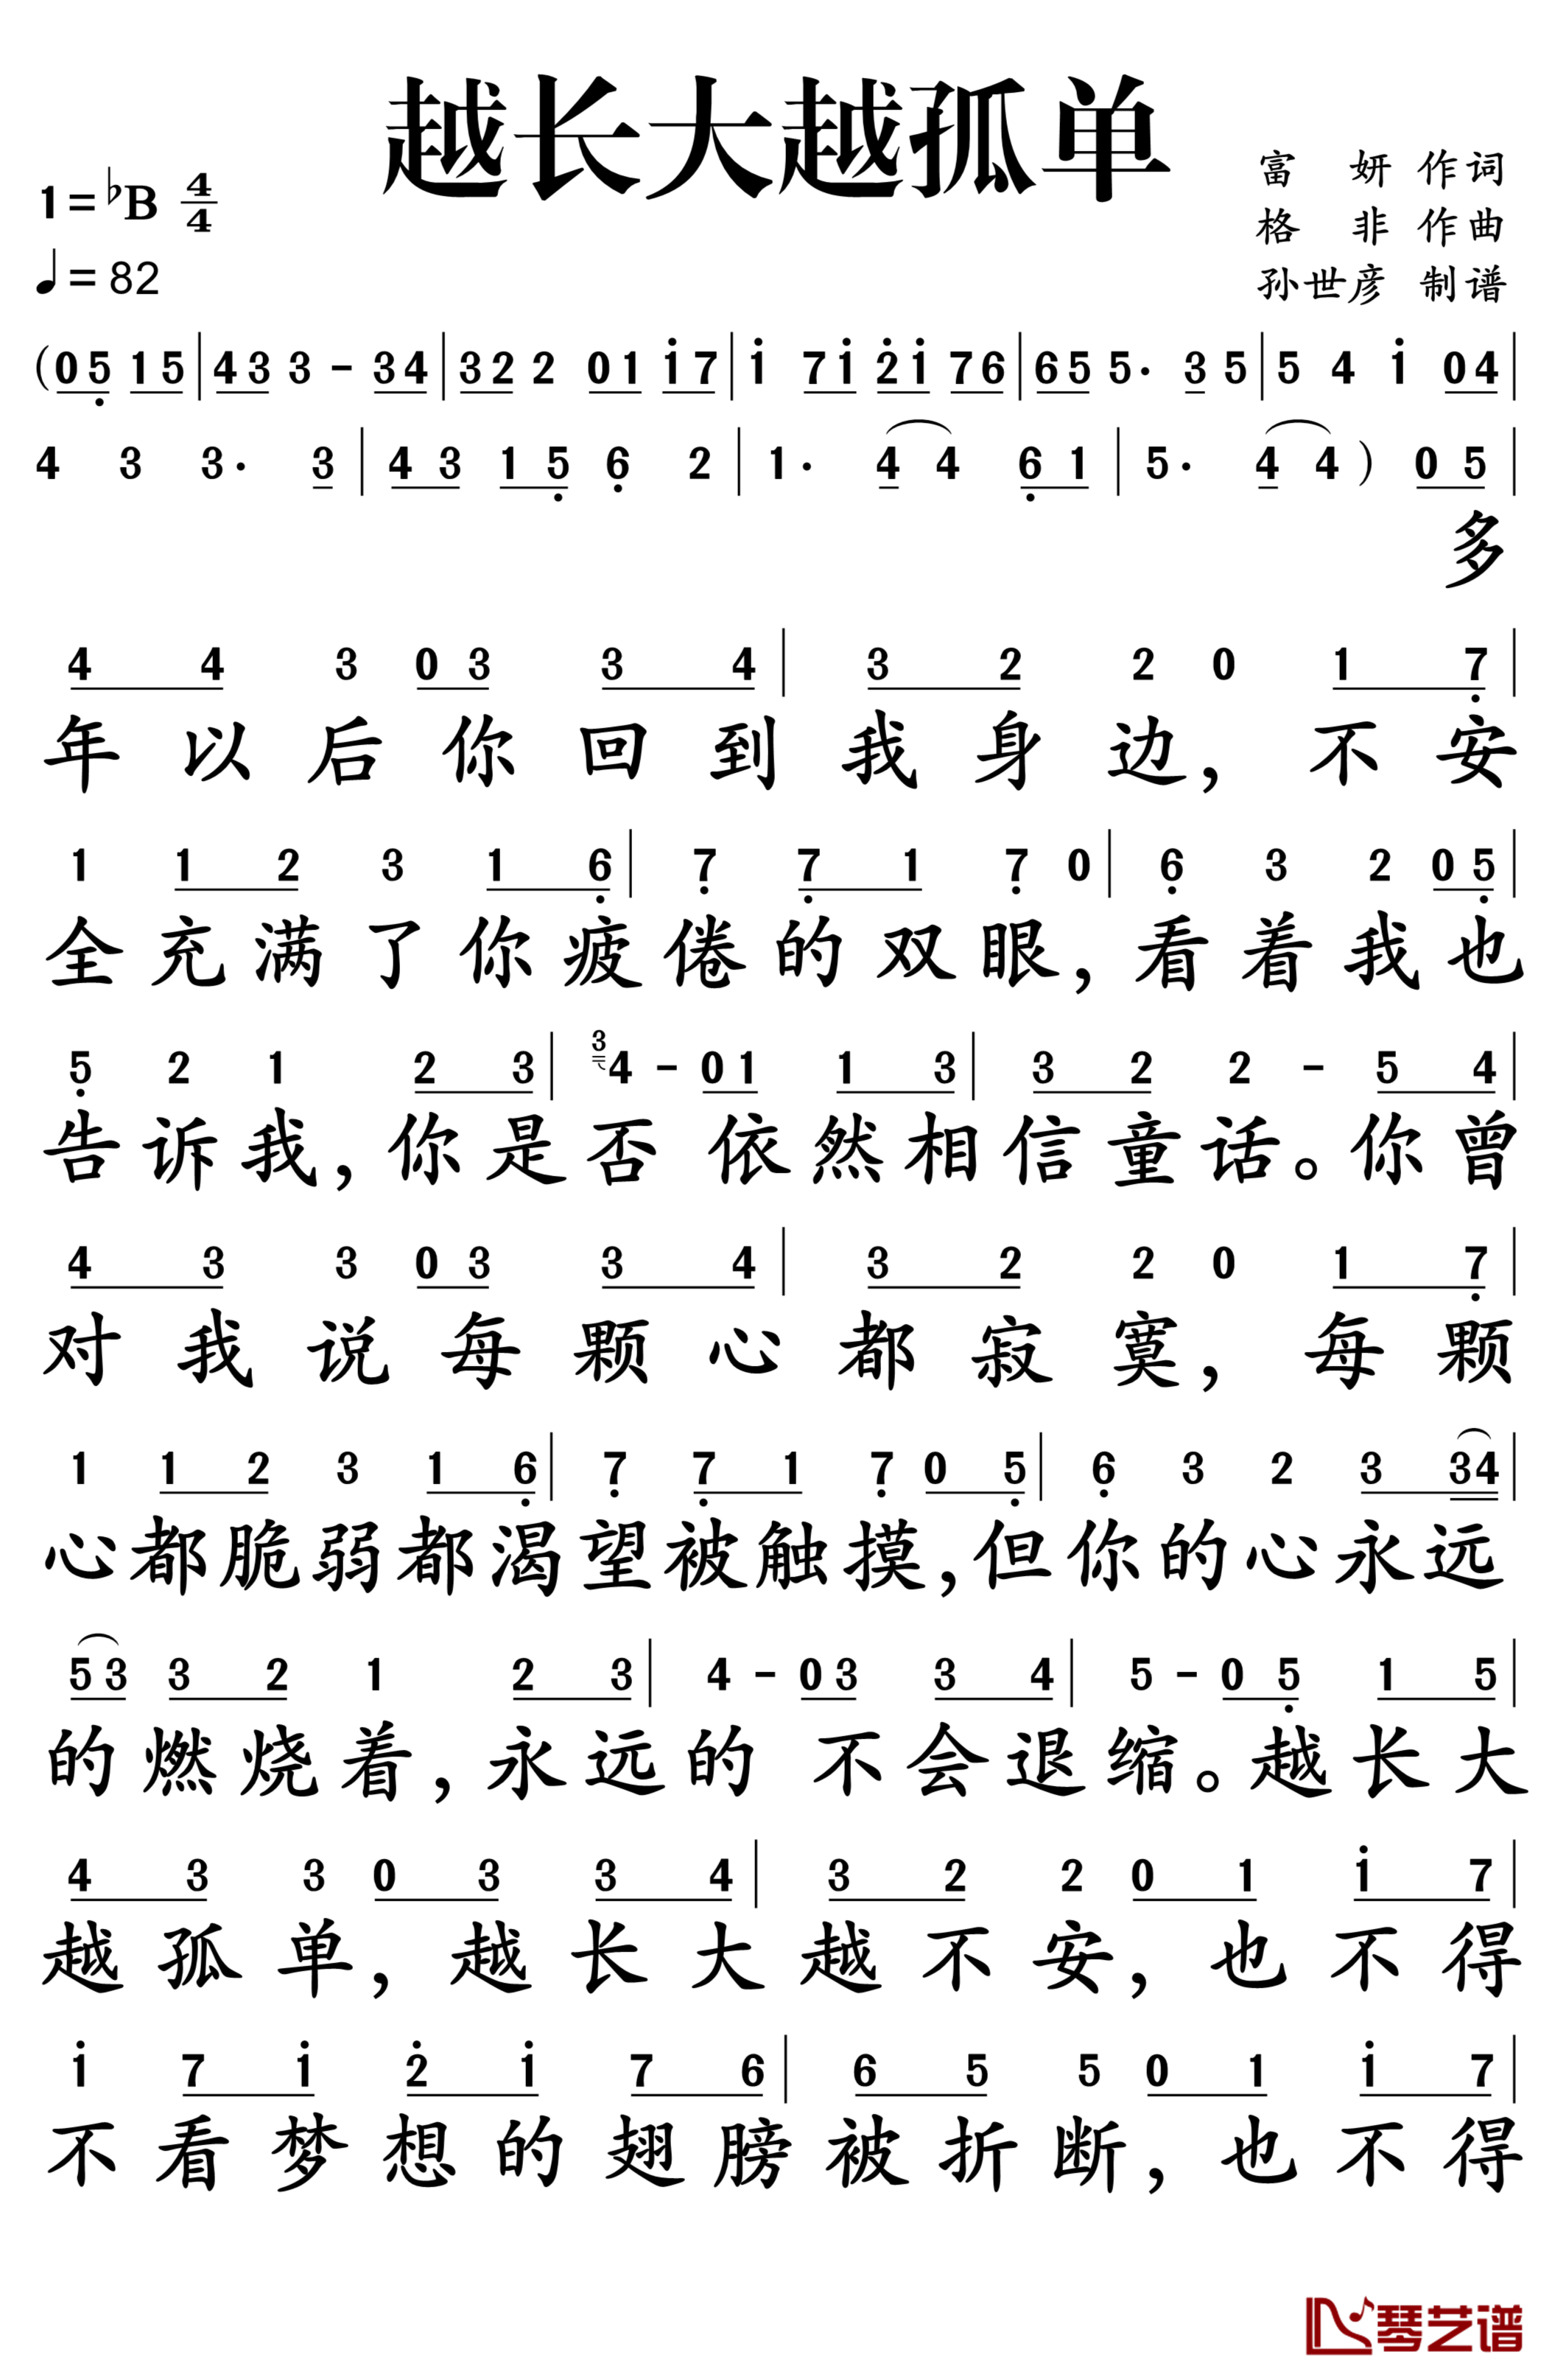 越长大越孤单
1=♭B 4/4
♩=82
富 妍 作词
格 非 作曲
孙世彦 制谱
(0 5̣ 1 5 | 4 3 3 - 3 4 | 3 2 2 0 1 1̇ 7 | 1̇ 7 1̇ 2̇ 1̇ 7 6 | 6 5 5· 3 5 | 5 4 1̇ 0 4 |
4 3 3· 3 | 4 3 1 5̣ 6̣ 2 | 1· 4 4 6̣ 1 | 5· 4 4 ) 0 5̣ |
多
4 4 3 0 3 3 4 | 3 2 2 0 1 7̣ |
年以后你回到我身边，不安
1 1 2 3 1 6̣ | 7̣ 7̣ 1 7̣ 0 | 6̣ 3 2 0 5̣ |
全充满了你疲倦的双眼，看着我也
5̣ 2 1 2 3 | 3 4 - 0 1 1 3 | 3 2 2 - 5 4 |
告诉我，你是否依然相信童话。你曾
4 3 3 0 3 3 4 | 3 2 2 0 1 7̣ |
对我说每颗心都寂寞，每颗
1 1 2 3 1 6̣ | 7̣ 7̣ 1 7̣ 0 5̣ | 6̣ 3 2 3 3 4 |
心都脆弱都渴望被触摸，但你的心永远
5 3 3 2 1 2 3 | 4 - 0 3 3 4 | 5 - 0 5̣ 1 5 |
的燃烧着，永远的不会退缩。越长大
4 3 3 0 3 3 4 | 3 2 2 0 1 1̇ 7 |
越孤单，越长大越不安，也不得
1̇ 7 1̇ 2̇ 1̇ 7 6 | 6 5 5 0 1 1̇ 7 |
不看梦想的翅膀被折断，也不得
琴艺谱